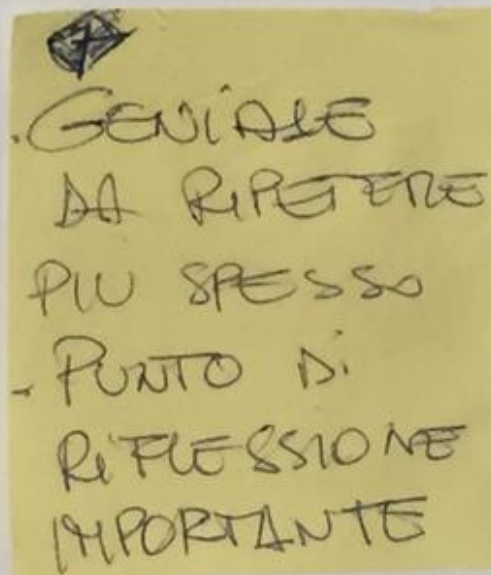 .GENIALE
DA RIPETERE
PIU SPESSO
- PUNTO Di
RiFLESSIONE
IMPORTANTE